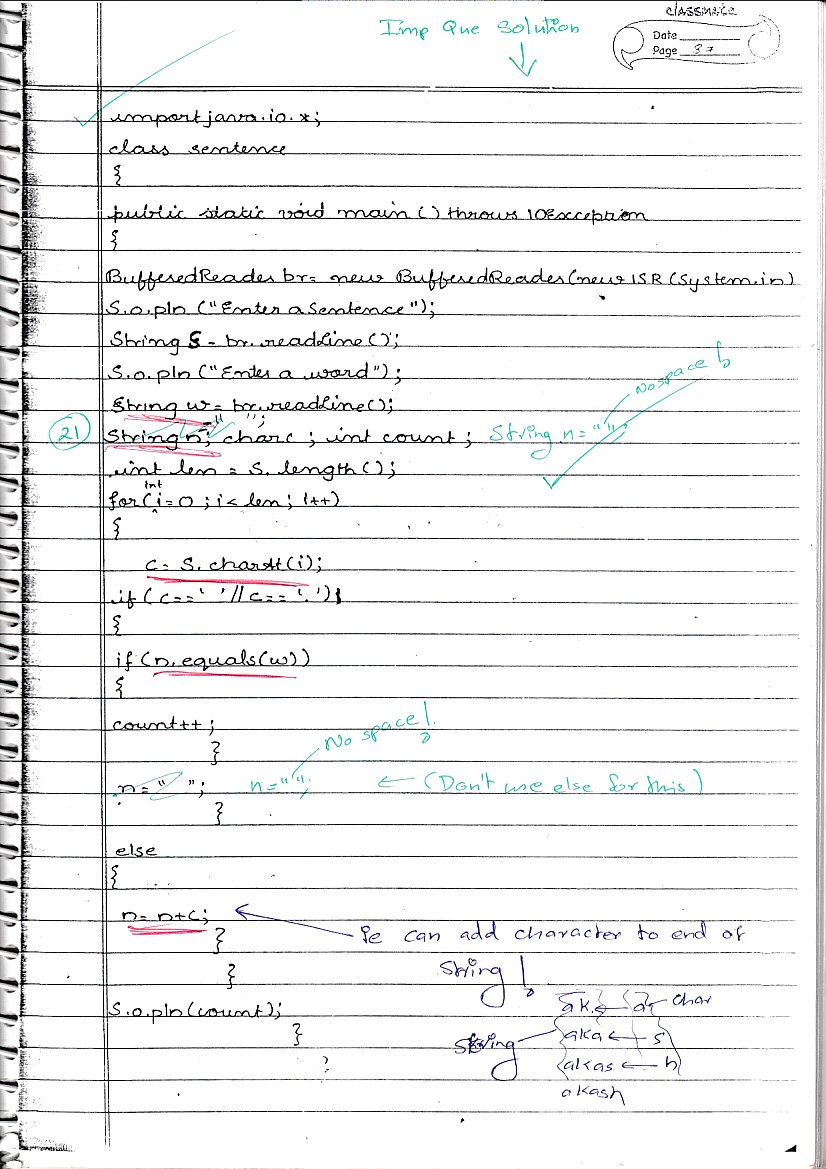 classmate
Imp Que Solution
Date
Page 87
import java.io.*;
class sentence
{
public static void main () throws IOException
{
BufferedReader br= new BufferedReader(new ISR (System.in)
S.o.pln ("Enter a Sentence");
String S = br.readLine ();
S.o.pln ("Enter a word");
String w= br.readLine();
No space !
21 String n; =" "; char c ; int count ; String n = "";
int len = S.length();
int
for(i=0 ; i< len ; i++)
{
c= S.charAt(i);
if (c==' ' || c== '.')
{
if (n.equals(w))
{
count++ ;
}
No space !
n=" "; n=""; ← (Don't use else for this)
}
else
{
n= n+c;
}
Ie can add character to end of
}
String !
S.o.pln(count);
ak a char
}
String aka ← s
}
akas ← h
akash